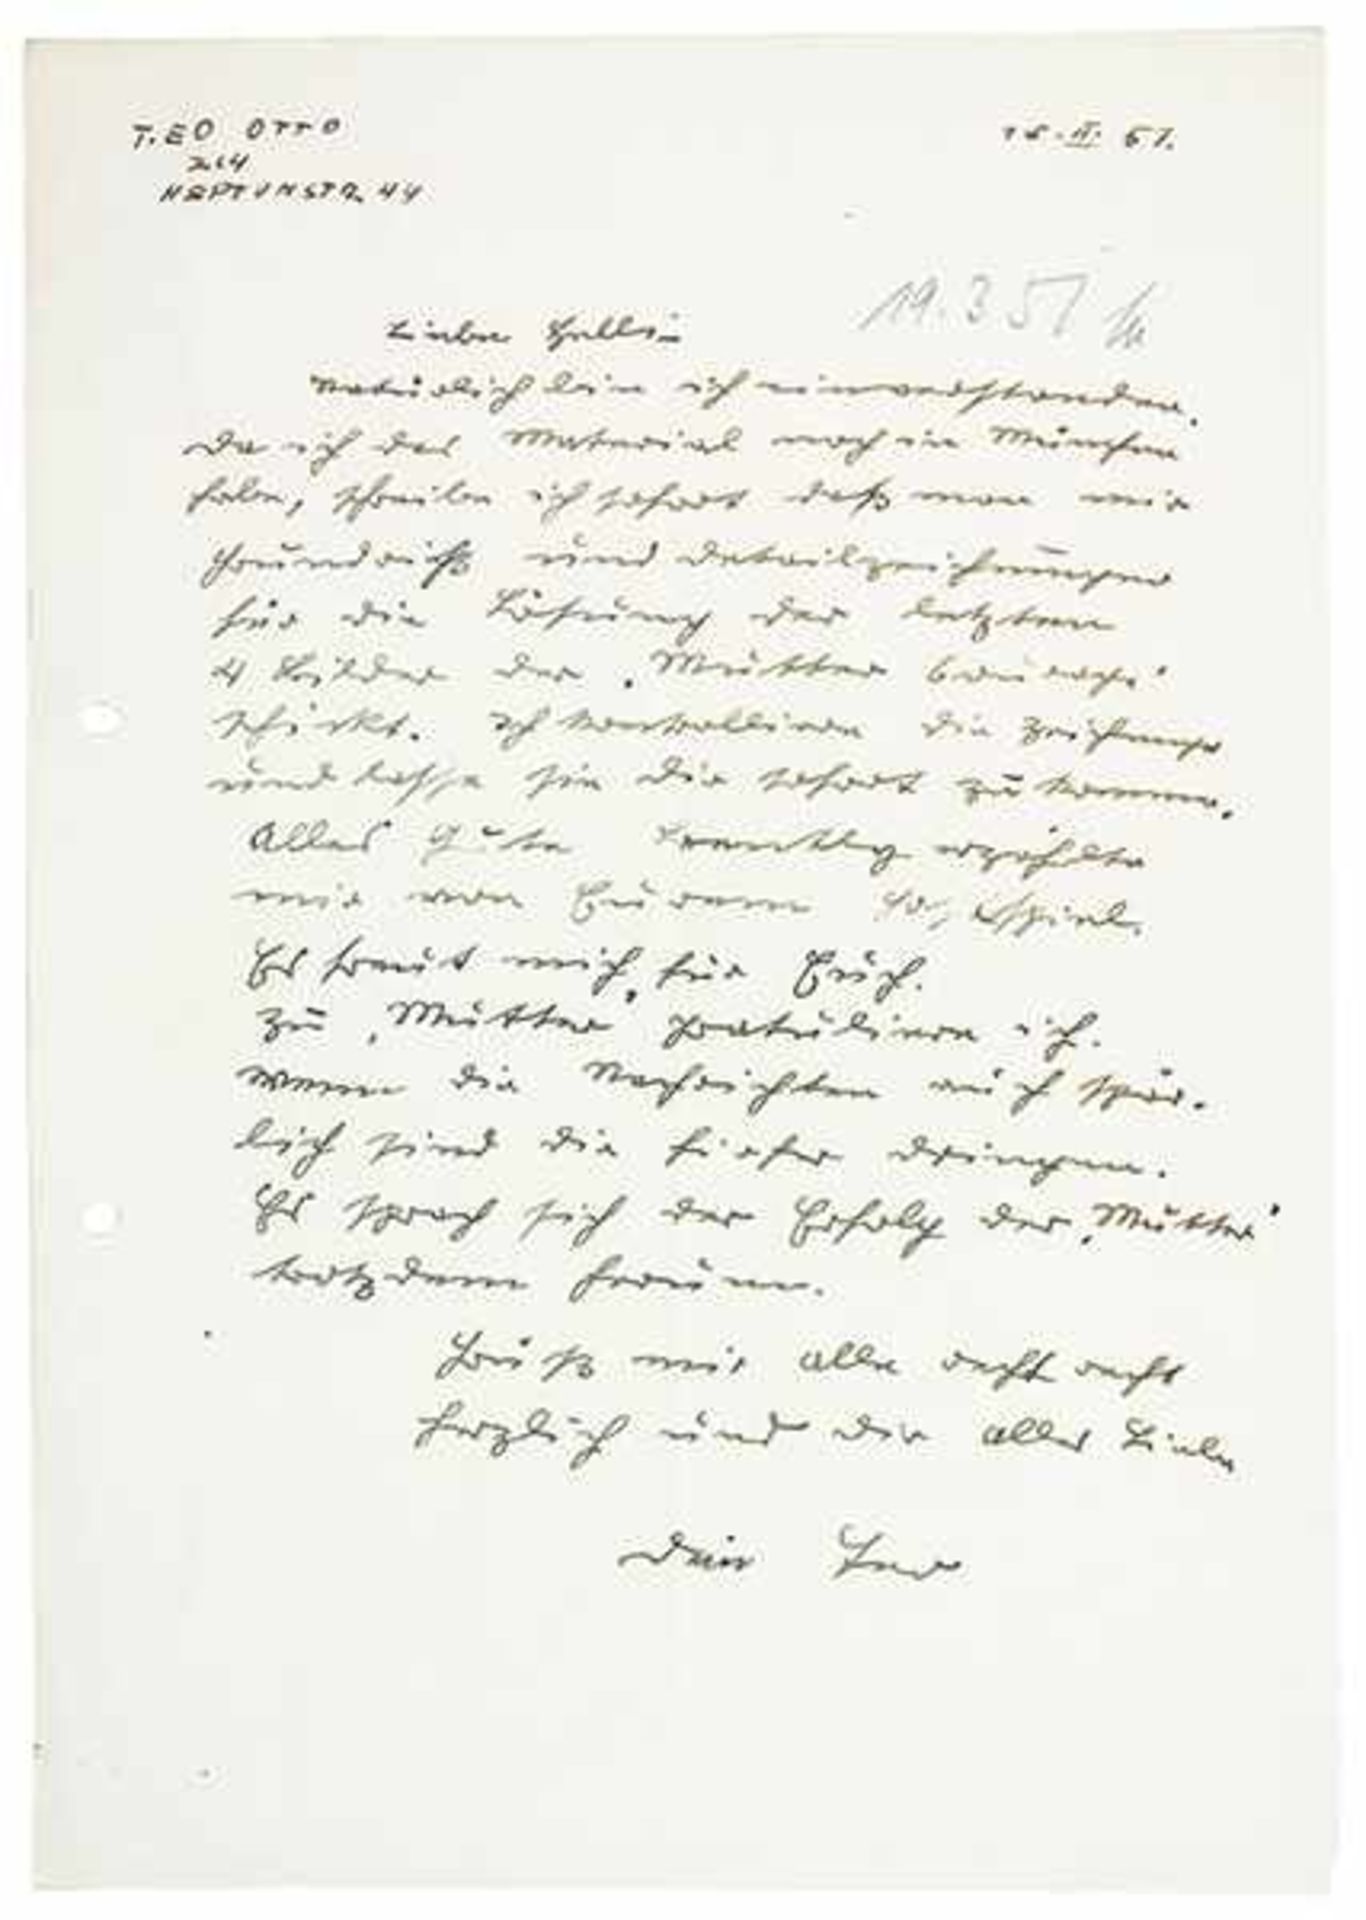 TEO OTTO
ZCH
NEPTUNSTR. 44
51.
19.3.51
Liebe Helli –
Natürlich bin ich einverstanden.
Da ich das Material noch in München
habe, schreibe ich sofort daß man mir
Grundriß und Detailzeichnungen
für die Lösung der letzten
4 Bilder der "Mutter Courage"
schickt. Ich kontrolliere die Zeichnungen
und lasse sie Dir sofort zukommen.
Alles Gute erzählte
mir von Eurem Gastspiel.
Es freut mich, für Euch.
Zu "Mutter" gratuliere ich.
Wenn die Nachrichten auch spär-
lich sind die hierher dringen.
Es sprach sich der Erfolg der "Mutter"
trotzdem herum.
Grüß mir alle recht recht
herzlich und Dir alles Liebe
Dein Teo